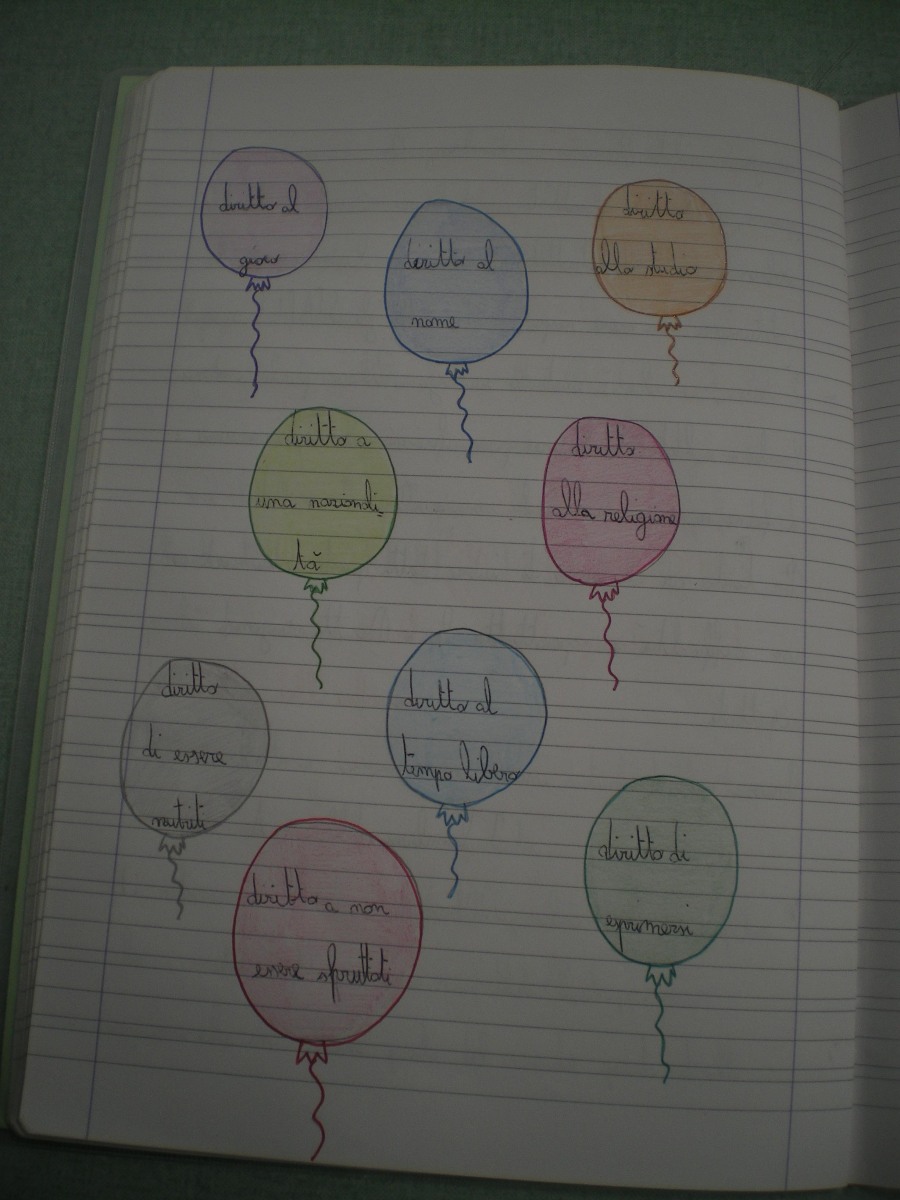 diritto al
gioco
diritto al
nome
diritto
allo studio
diritto a
una nazionali
tà
diritto
alla religione
diritto
di essere
nutriti
diritto al
tempo libero
diritto a non
essere sfruttati
diritto di
esprimersi